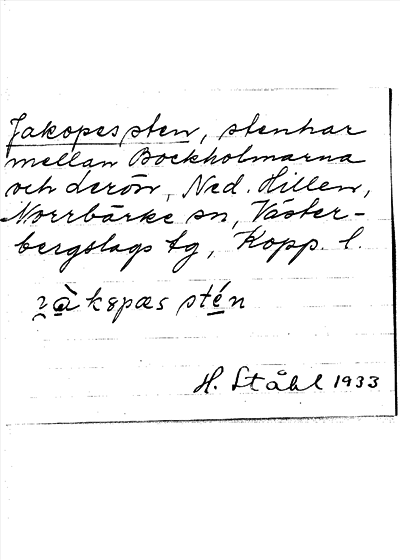 Jakopes sten, stenhar
mellan Bockholmarna
och Lerön, Ned. Hillen,
Norrbärke sn, Väster-
bergslags tg, Kopp. l.
stén
H. Ståhl 1933